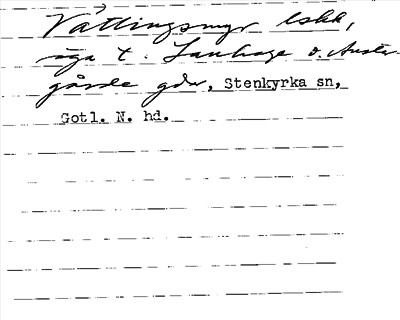 Vättingsmyr lskh,
äga t. Lauhage o. Auster-
gårde gdr, Stenkyrka sn,
Gotl. N. hd.